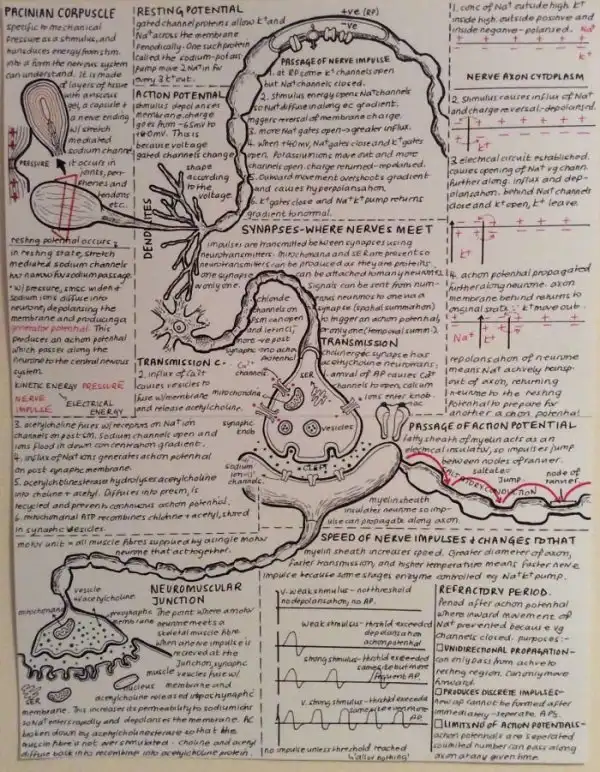 PACINIAN CORPUSCLE
specific to mechanical
pressure as a stimulus, and
transduces energy from stim.
into a form the nervous system
can understand. It is made
of layers of tissue
with a viscous
gel, a capsule &
a nerve ending
w/ stretch
mediated
sodium channels
it occurs in
joints, peri-
pheries and
tendons
etc.
PRESSURE
resting potential occurs:
in resting state, stretch
mediated sodium channels
too narrow for sodium passage.
• w/ pressure, smsc widen &
sodium ions diffuse into
neurone, depolarising the
membrane and producing a
generator potential. This
produces an action potential
which passes along the
neurone to the central nervous
system.
KINETIC ENERGY PRESSURE
NERVE
IMPULSE
ELECTRICAL
ENERGY
RESTING POTENTIAL
gated channel proteins allow K+ and
Na+ across the membrane
periodically. One such protein
called the sodium-potas.
pump moves 2 Na+ in for
every 3 K+ out.
ACTION POTENTIAL
stimulus depolarises
membrane, charge
goes from -65mV to
+40mV. This is
because voltage
gated channels change
shape
according
to the
voltage.
DENDRITES
+ve (RP)
-ve
PASSAGE OF NERVE IMPULSE
1. at RP some K+ channels open
but Na+ channels closed.
2. stimulus energy opens Na+ channels
so Na+ diffuse in along ec gradient.
triggers reversal of membrane charge.
3. more Na+ gates open → greater influx.
4. When +40mV, Na+ gates close and K+ gates
open. Potassium ions move out and more
channels open. charge returned - repolarised.
5. Outward movement overshoots gradient
and causes hyperpolarisation.
6. K+ gates close and Na+ K+ pump returns
gradient to normal.
1. conc of Na+ outside high. K+
inside high. outside positive and
inside negative - polarised. Na+
K+
NERVE AXON CYTOPLASM
2. Stimulus causes influx of Na+
and charge reversal - depolarised.
3. electrical circuit established.
causes opening of Na+ vg chann.
further along. influx and dep-
olarisation. behind Na+ channels
close and K+ open, K+ leave.
4. action potential propagated
further along neurone. axon
membrane behind returns to
original state: K+ move out.
Na+ K+
repolarisation of neurone
means Na+ actively transp.
out of axon, returning
neurone to the resting
potential to prepare for
another action potential
SYNAPSES-WHERE NERVES MEET
impulses are transmitted between synapses using
neurotransmitters. mitochondria and SER are present so
neurotransmitters can be produced as they are proteins.
one synapse can be attached to many neurones.
Signals can be sent from num-
erous neurones to one via a
synapse (spatial summation)
to trigger an action potential,
or only one (temporal summ.).
chloride
channels on
psm can open
and let in Cl-,
more -ve post
synaptic - no action
potential
TRANSMISSION
cholinergic synapse has
acetylcholine neurotrans:
1. arrival of AP causes Ca2+
channels to open, calcium
ions enter knob
TRANSMISSION C.
2. influx of Ca2+
causes vesicles to
fuse w/ membrane
and release acetylcholine.
Ca2+
channels
mitochondria
SER
synaptic
knob
vesicles
cleft
sodium
ion (Na+)
channels
3. acetylcholine fuses w/ receptors on Na+ ion
channels on post SM. Sodium channels open and
ions flood in down concentration gradient.
4. influx of Na+ ions generates action potential
on post synaptic membrane.
5. acetylcholinesterase hydrolyses acetylcholine
into choline + acetyl. Diffuses into presm, is
recycled and prevents continuous action potential.
6. mitochondrial ATP recombines choline + acetyl, stored
in synaptic vesicles.
PASSAGE OF ACTION POTENTIAL
fatty sheath of myelin acts as an
electrical insulator, so impulses jump
between nodes of ranvier.
saltates
jump
SALTATORY CONDUCTION
node of
ranvier
myelin sheath
insulates neurone so imp-
ulse can propagate along axon.
motor unit = all muscle fibres supplied by a single motor
neurone that act together.
SPEED OF NERVE IMPULSES & CHANGES TO THAT
myelin sheath increases speed. Greater diameter of axon,
faster transmission, and higher temperature means faster nerve
impulse because some stages enzyme controlled eg Na+ K+ pump.
NEUROMUSCULAR
JUNCTION
vesicle
w/ acetylcholine
mitochondria
presynaptic
membrane
The point where a motor
neurone meets a
skeletal muscle fibre.
when a nerve impulse
is recieved at the
Junction, synaptic
vesicles fuse w/
membrane and
acetylcholine released into postsynaptic
muscle
nucleus
SER
membrane. This increases its permeability to sodium ions
so Na+ enters rapidly and depolarises the membrane. AC
broken down by acetylcholinesterase so that the
muscle fibre is not over stimulated - choline and acetyl
diffuse back into recombine into acetylcholine protein.
v. weak stimulus - no threshold
no depolarisation, no AP.
weak stimulus - threshold exceeded
depolarisation
action potential
strong stimulus - threshold exceeded
same size but more
frequent AP.
v. strong stimulus - threshold exceeded
more frequent
AP
no impulse unless threshold reached
'all or nothing'
REFRACTORY PERIOD.
Period after action potential
where inward movement of
Na+ prevented because vg
channels closed. purposes:-
UNIDIRECTIONAL PROPAGATION-
can only pass from active to
resting region. Can only move
forward.
PRODUCES DISCRETE IMPULSES-
new AP cannot be formed after
immediately - seperate APs.
LIMITING OF ACTION POTENTIALS-
action potentials are seperated
so limited number can pass along
axon at any given time.